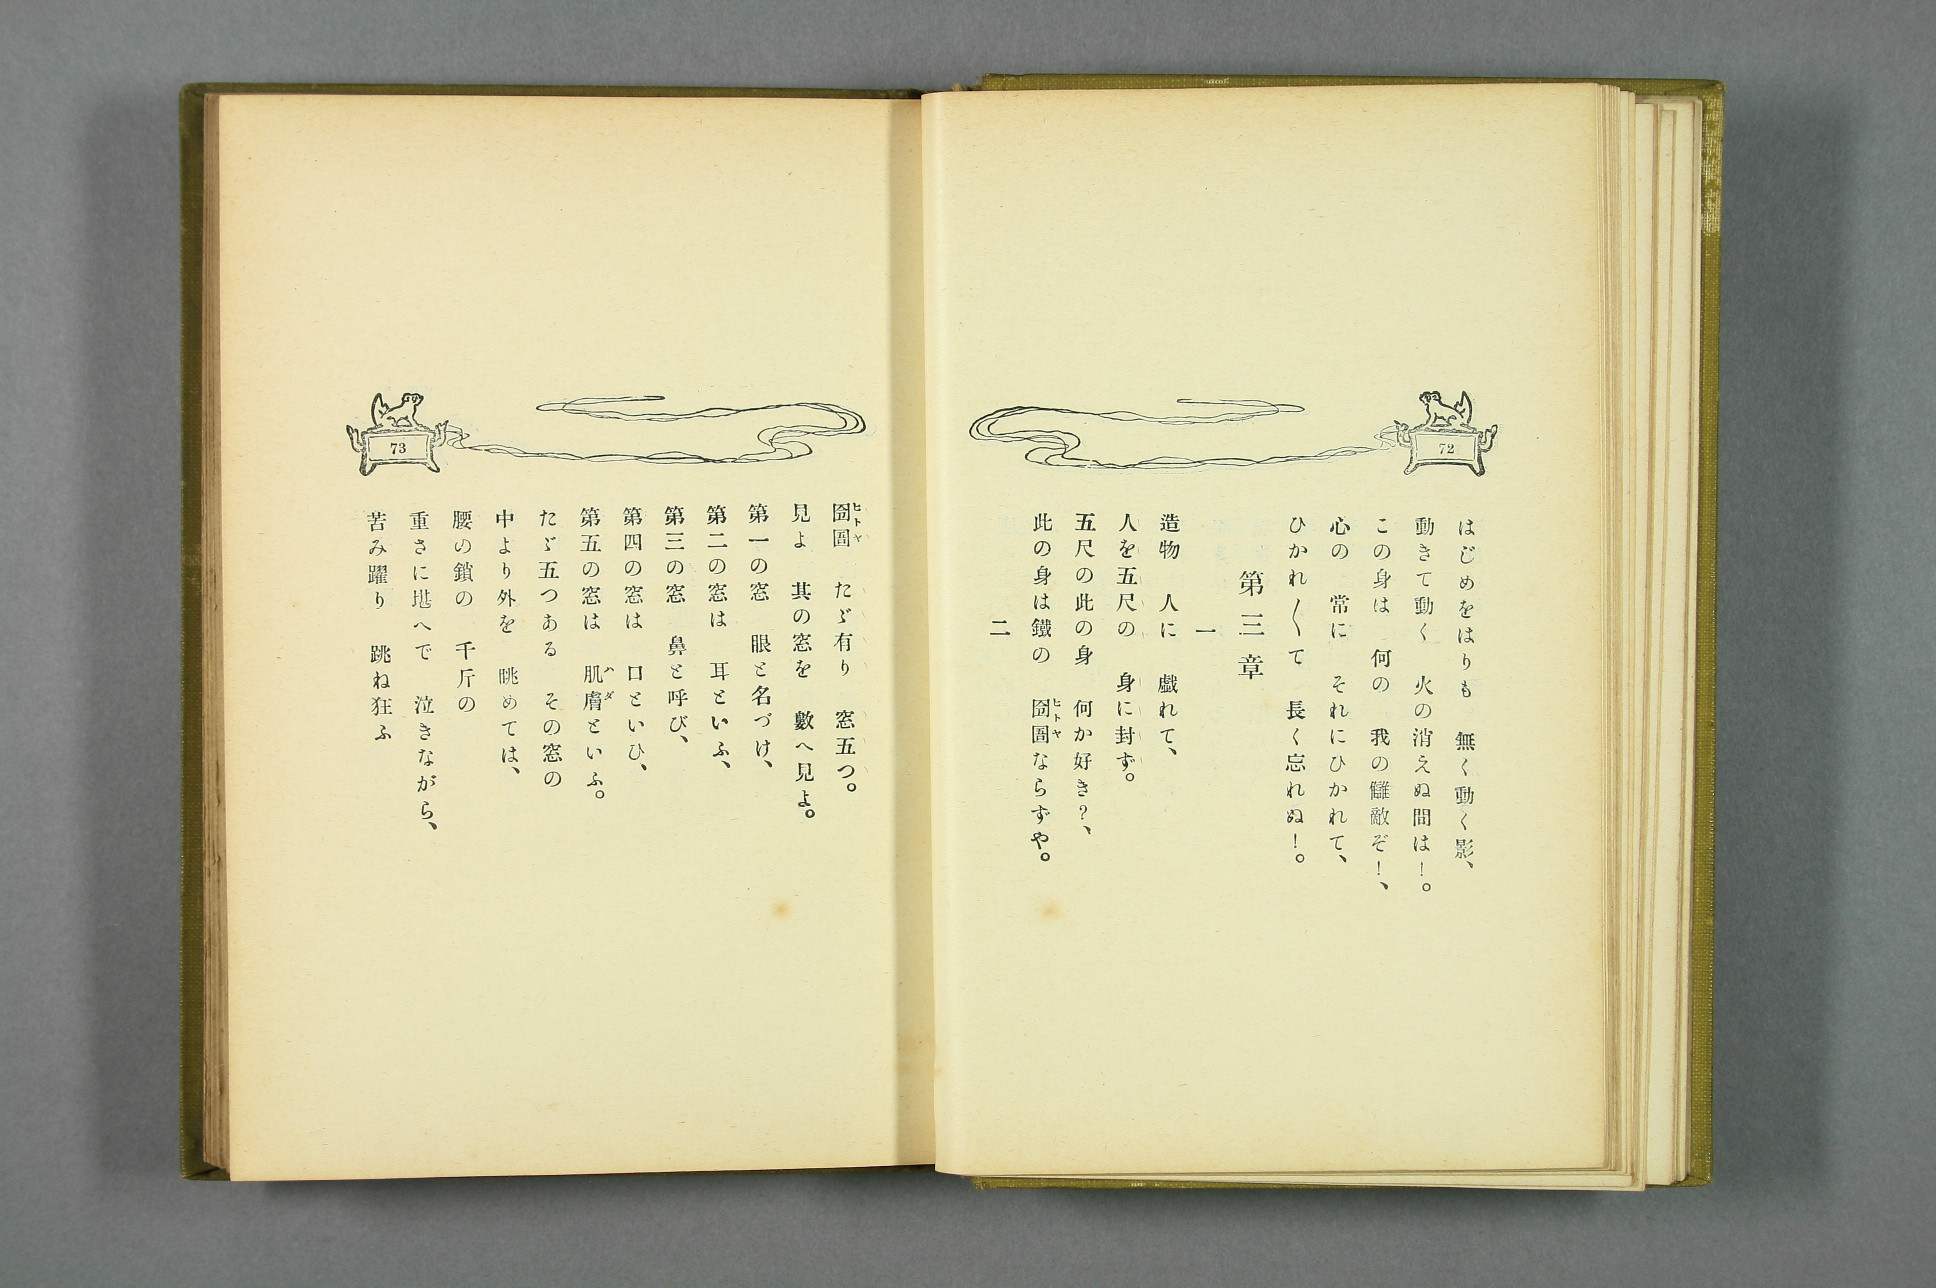 72
はじめをはりも　無く動く影、
動きて動く　火の消えぬ間は！。
この身は　何の　我の讎敵ぞ！、
心の　常に　それにひかれて、
ひかれ〱て　長く忘れぬ！。
第三章
一
造物　人に　戯れて、
人を五尺の　身に封ず。
五尺の此の身　何か好き？、
此の身は鐵の　囹圄ならずや。
ヒトヤ
二
73
囹圄　たゞ有り　窓五つ。
ヒトヤ
見よ　其の窓を　數へ見よ。
第一の窓　眼と名づけ、
第二の窓は　耳といふ、
第三の窓　鼻と呼び、
第四の窓は　口といひ、
第五の窓は　肌膚といふ。
ハダ
たゞ五つある　その窓の
中より外を　眺めては、
腰の鎖の　千斤の
重さに堪へで　泣きながら、
苦み躍り　跳ね狂ふ